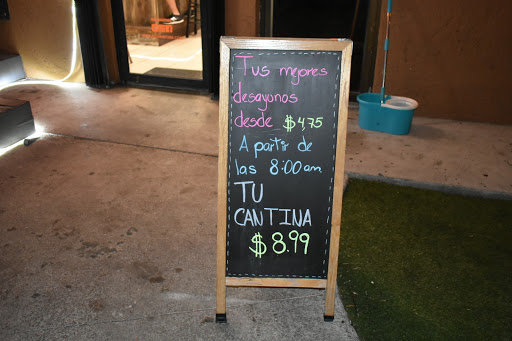 Tus mejores
desayunos
desde $4,75
A partir de
las 8:00am
TU
CANTINA
$8.99